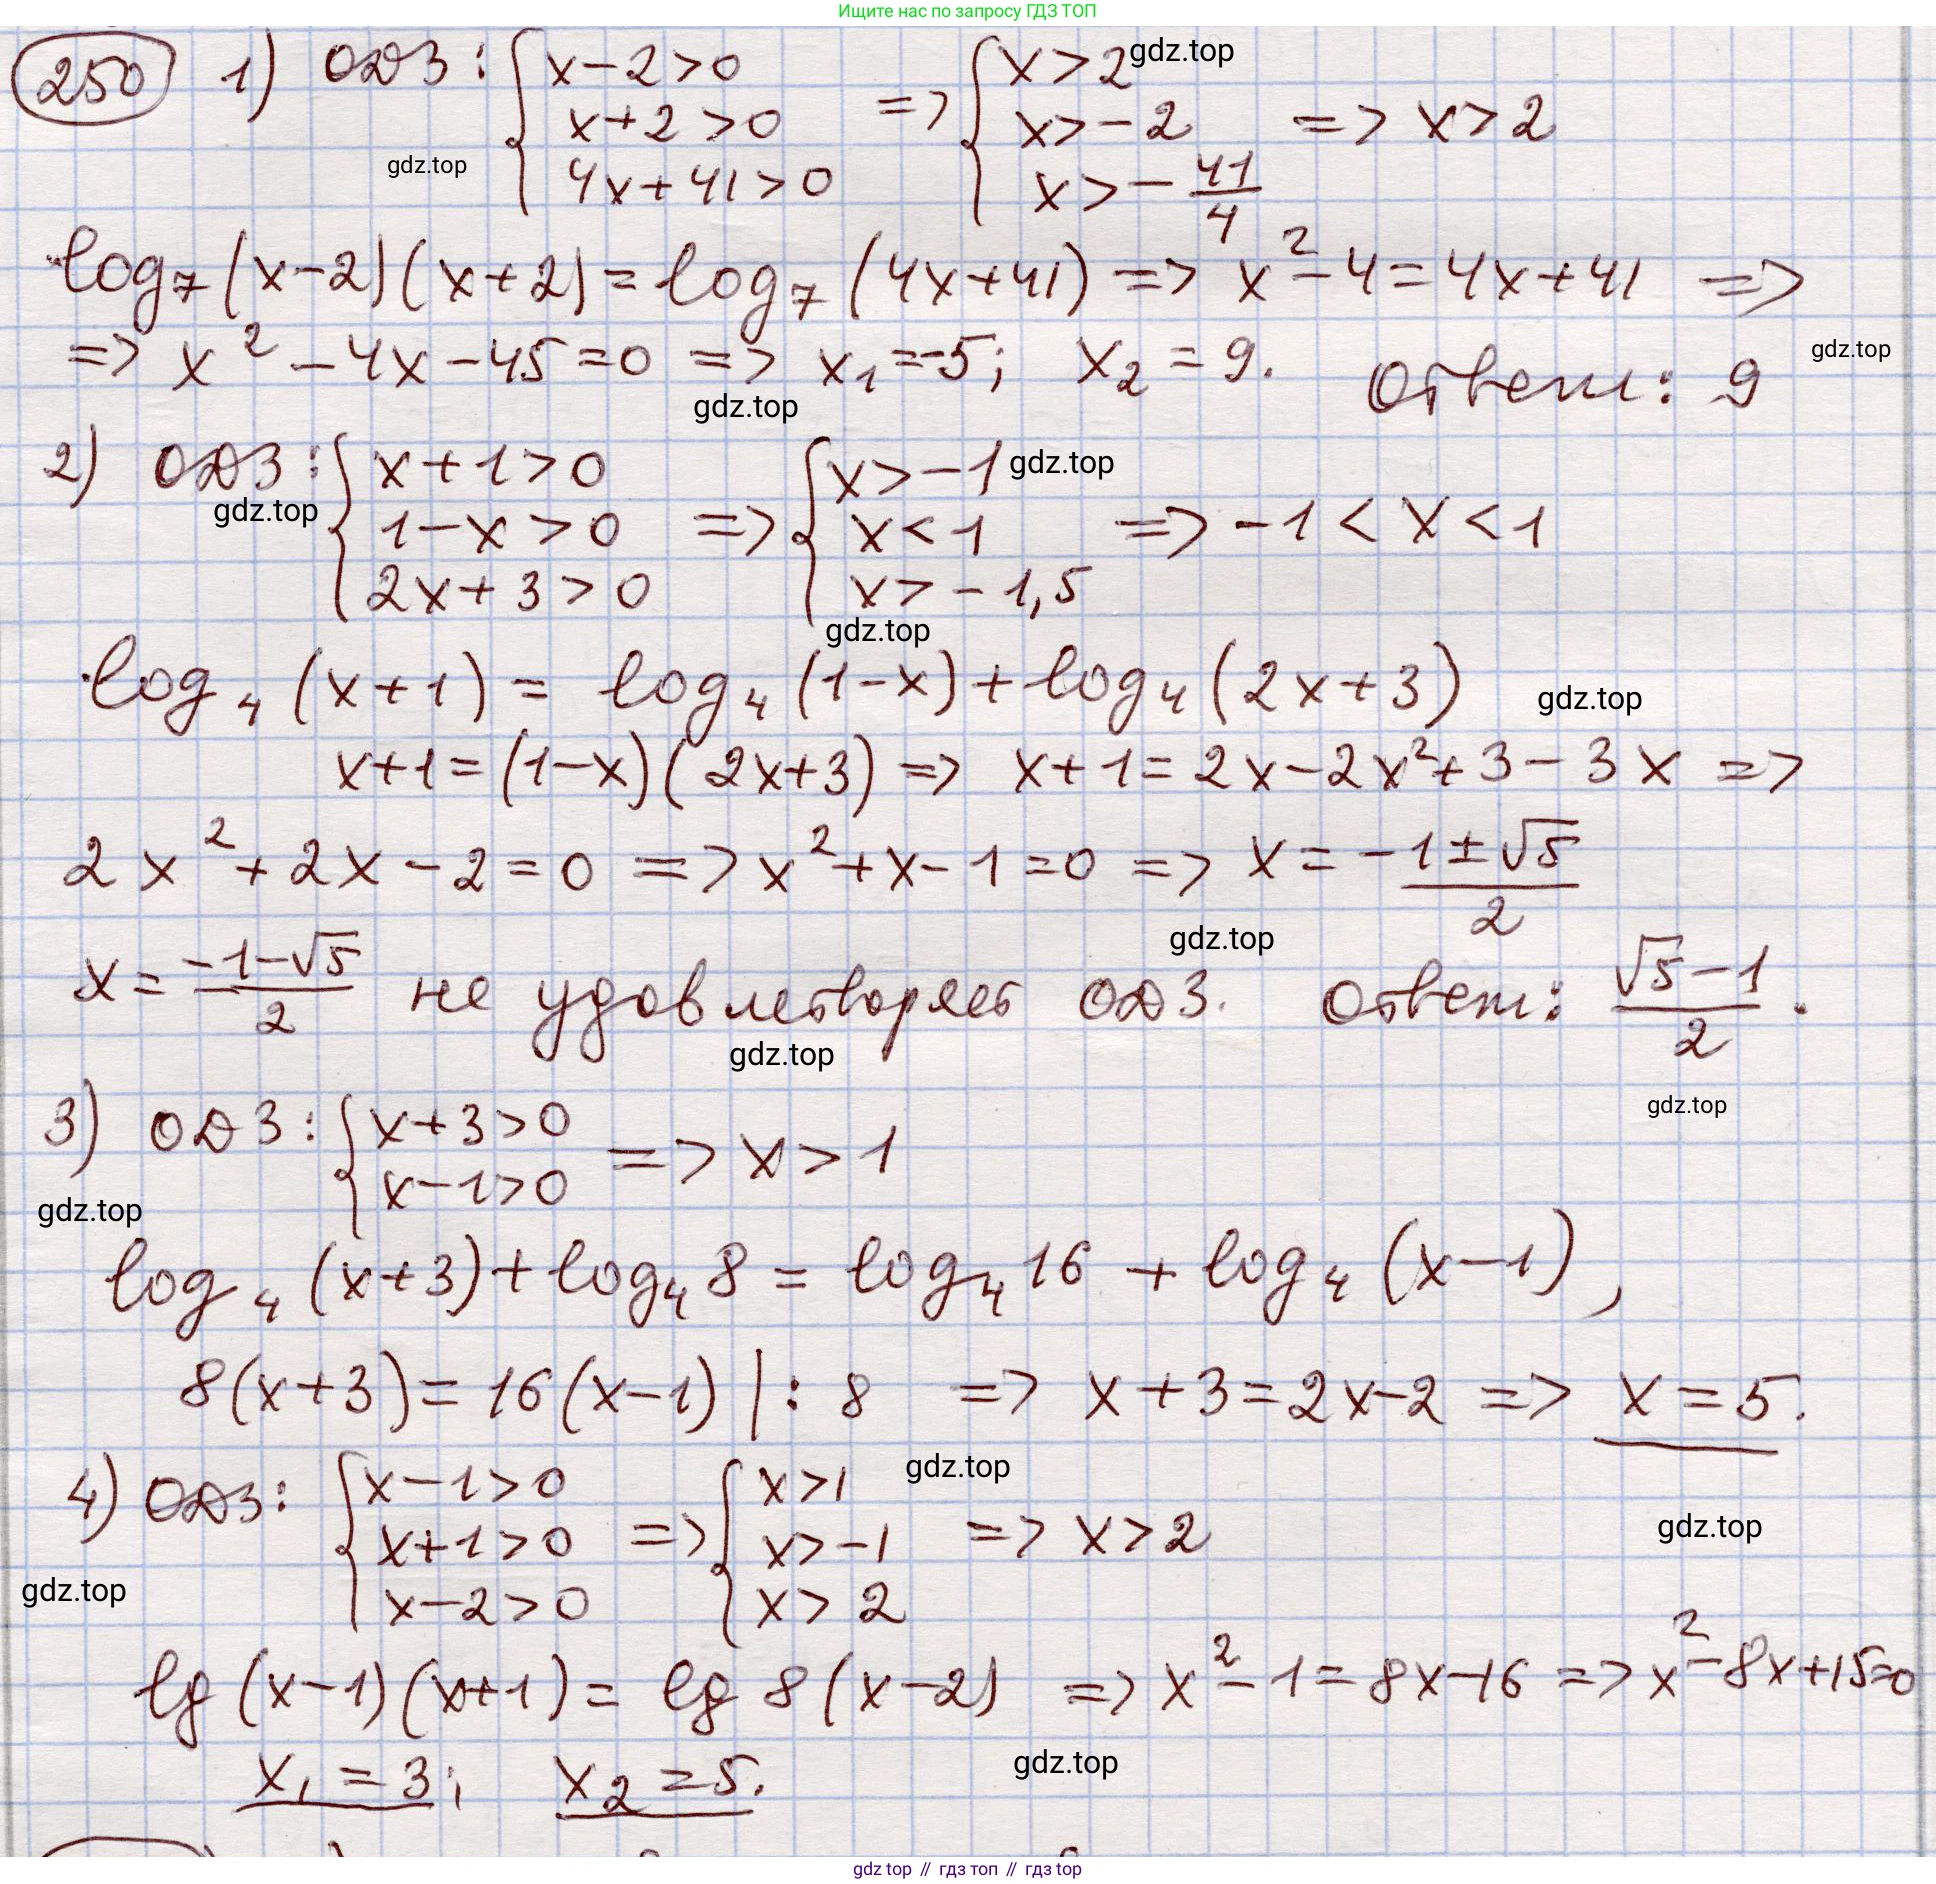 Ищите нас по запросу ГДЗ ТОП
250 1) ОДЗ: { x-2>0 => { x>2 gdz.top
x+2>0 x>-2 => x>2
gdz.top 4x+41>0 x>-41/4
log₇(x-2)(x+2)=log₇(4x+41) => x²-4=4x+41 =>
=> x²-4x-45=0 => x₁=-5; x₂=9. Ответ: 9 gdz.top
gdz.top
2) ОДЗ: { x+1>0 { x>-1 gdz.top
gdz.top 1-x>0 => x<1 => -1<x<1
2x+3>0 x>-1,5
gdz.top
log₄(x+1) = log₄(1-x)+log₄(2x+3) gdz.top
x+1=(1-x)(2x+3) => x+1=2x-2x²+3-3x =>
2x²+2x-2=0 => x²+x-1=0 => x=-1±√5/2
gdz.top
x=-1-√5/2 не удовлетворяет ОДЗ. Ответ: √5-1/2.
gdz.top
gdz.top
3) ОДЗ: { x+3>0 => x>1
x-1>0
gdz.top
log₄(x+3)+log₄8=log₄16+log₄(x-1),
8(x+3)=16(x-1) |:8 => x+3=2x-2 => x=5.
gdz.top
4) ОДЗ: { x-1>0 { x>1
x+1>0 => x>-1 => x>2 gdz.top
gdz.top x-2>0 x>2
lg(x-1)(x+1)=lg8(x-2) => x²-1=8x-16 => x²-8x+15=0
x₁=3; x₂=5. gdz.top
gdz top // гдз топ // гдз top